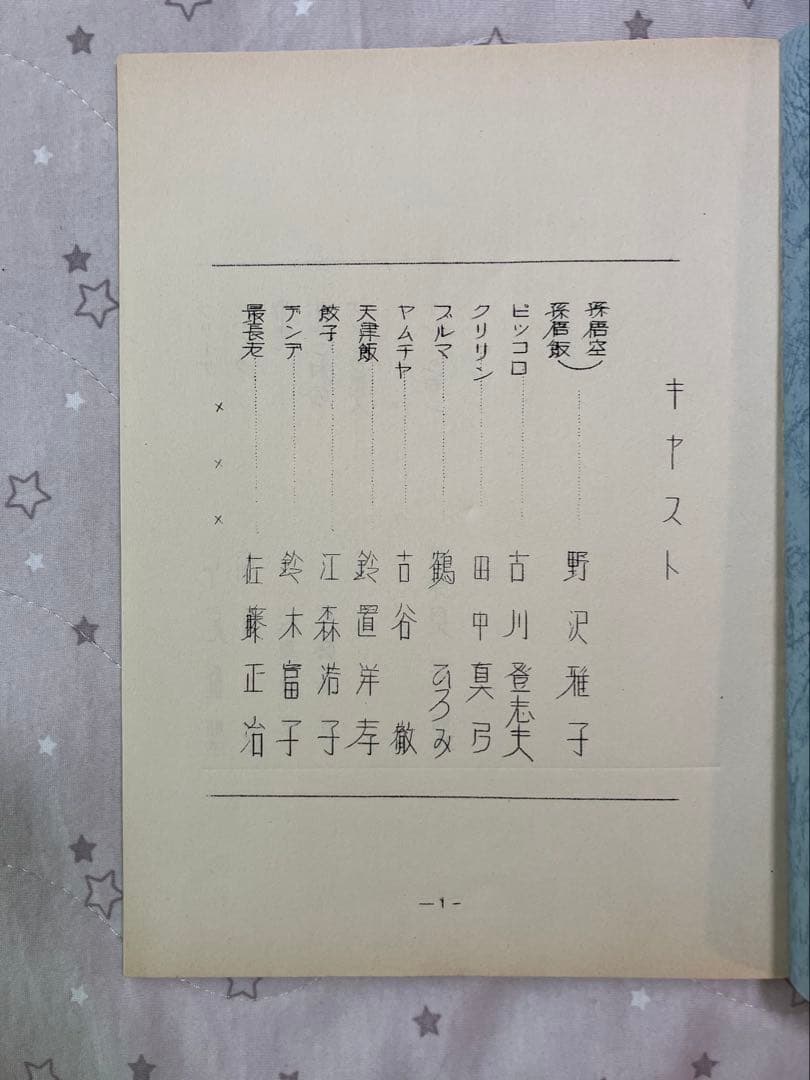 キャスト
孫悟空)
孫悟飯)………野沢雅子
ピッコロ………古川登志夫
クリリン………田中真弓
ブルマ………鶴ひろみ
ヤムチャ………古谷徹
天津飯………鈴置洋孝
餃子………江森浩子
デンデ………鈴木富子
最長老………佐藤正治
×××
—1-